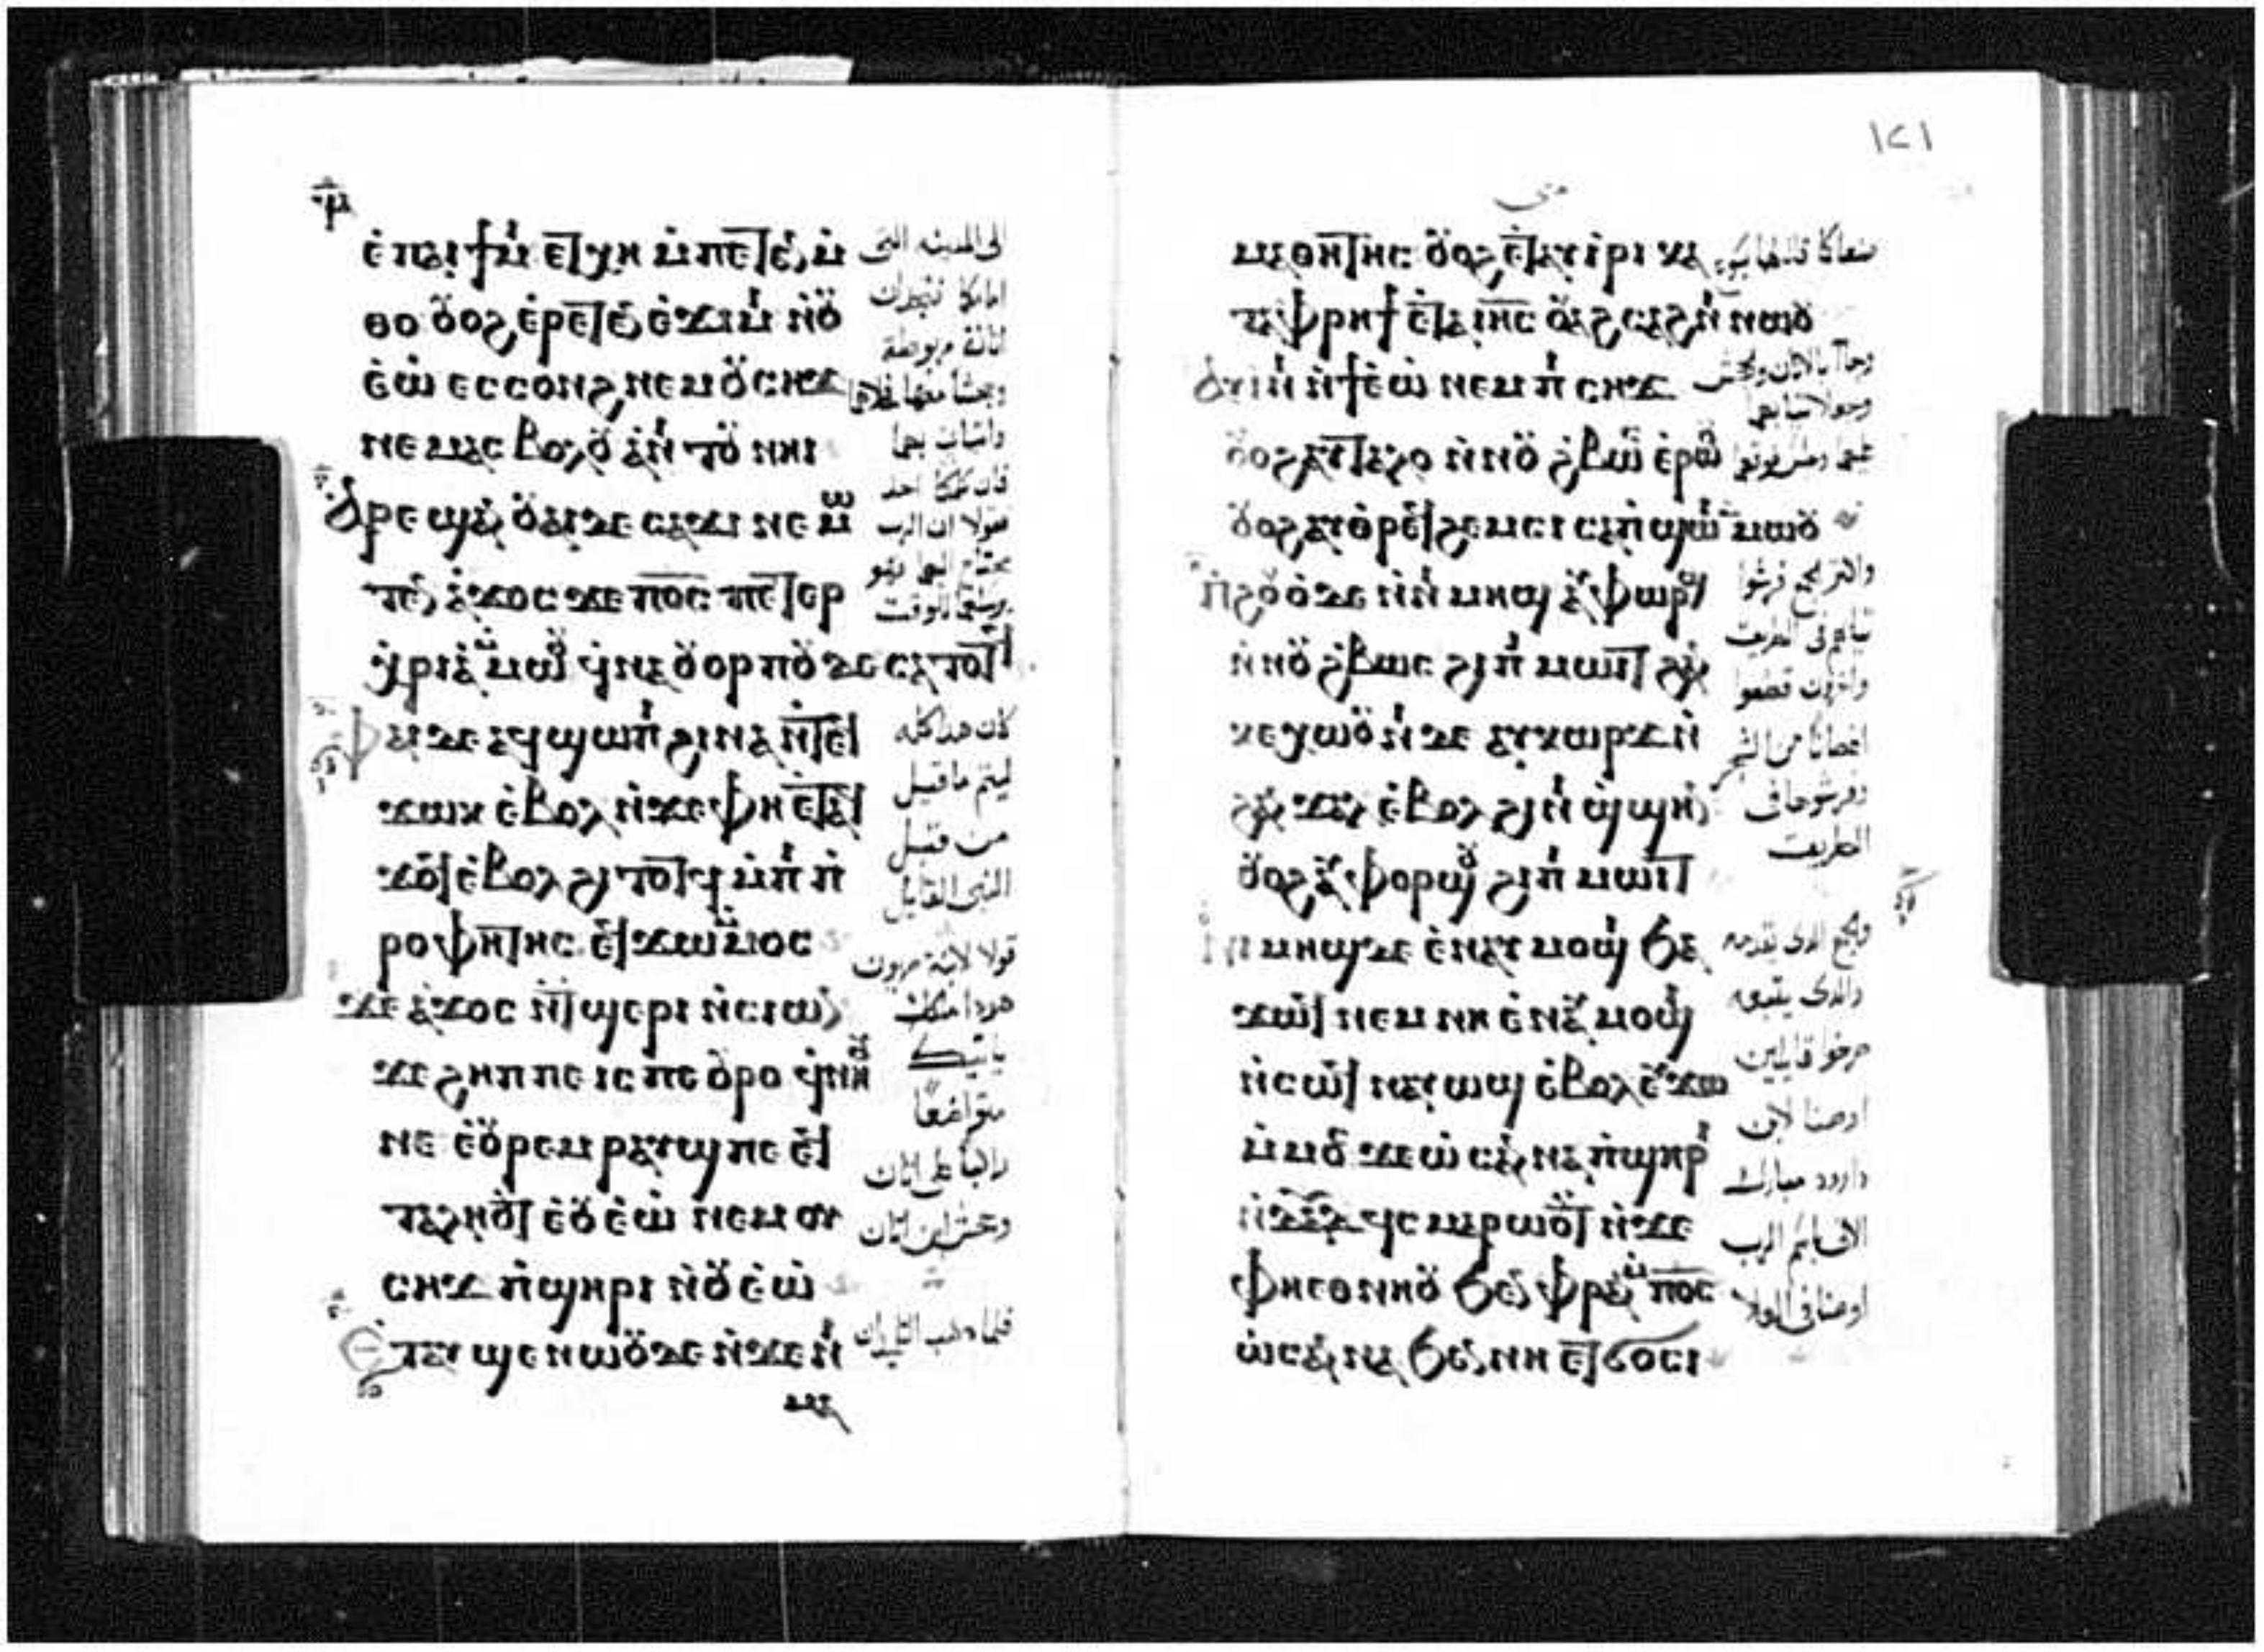 ⲙ̅
ⲉ̀ⲡⲁⲓϯⲙⲓ ⲉⲧⲭⲏ ⲙ̀ⲡⲉⲧⲉⲛⲙ̀
ⲑⲟ ⲟⲩⲟϩ ⲉ̀ⲣⲉⲧⲉⲛ ⲉ̀ϫⲓⲙⲓ ⲛ̀ⲟⲩ
ⲉ̀ⲱ̀ ⲉⲥⲥⲟⲛϩ ⲛⲉⲙ ⲟⲩⲥⲏϫ
ⲛⲉⲙⲁⲥ ⲃⲟⲗⲟⲩ ⲁ̀ⲛⲓⲧⲟⲩ ⲛⲏⲓ
Ⲁⲣⲉϣⲁⲛ ⲟⲩⲁⲓ ⲇⲉ ⲥⲁϫⲓ ⲛⲉⲙⲱ
ⲧⲉⲛ ⲁ̀ϫⲟⲥ ϫⲉ ⲡⲟ̅ⲥ̅ ⲡⲉⲧⲉⲣ
ⲭ̀ⲣⲓⲁ ⲙ̀ⲙⲱⲟⲩ ϥ̀ⲛⲁⲟⲩⲟⲣⲡⲟⲩ ⲇⲉ ⲥⲁⲧⲟⲧϥ
Ⲫⲁⲓ ⲇⲉ ⲁϥϣⲱⲡⲓ ϩⲓⲛⲁ ⲛ̀ⲧⲉϥ
ϫⲱⲕ ⲉ̀ⲃⲟⲗ ⲛ̀ϫⲉ ⲫⲏ ⲉ̀ⲧⲁϥ
ϫⲟϥ ⲉ̀ⲃⲟⲗ ϩⲓⲧⲟⲧϥ ⲙ̀ⲡⲓⲡ̀
ⲣⲟⲫⲏⲧⲏⲥ ⲉϥϫⲱ ⲙ̀ⲙⲟⲥ
ϫⲉ ⲁ̀ϫⲟⲥ ⲛ̀ⲧϣⲉⲣⲓ ⲛ̀ⲥⲓⲱⲛ
ϫⲉ ϩⲏⲡⲡⲉ ⲓⲥ ⲡⲉⲟⲩⲣⲟ ϥ̀ⲛⲏⲟⲩ
ⲛⲉ ⲉ̀ⲟⲩⲣⲉⲙⲣⲁⲩϣ ⲡⲉ ⲉϥ
ⲧⲁⲗⲏⲟⲩⲧ ⲉ̀ⲟⲩⲉ̀ⲱ̀ ⲛⲉⲙ ⲟⲩ
ⲥⲏϫ ⲡ̀ϣⲏⲣⲓ ⲛ̀ⲟⲩⲉ̀ⲱ̀
Ⲉⲧⲁⲩϣⲉⲛⲱⲟⲩ ⲇⲉ ⲛ̀ϫⲉ ⲛⲓ
ⲙⲁ
الى المدينه التى
امامكا فتجدان
اتانة مربوطة
وجحشا معها فحلاهما
واتيان بهما
فان كلمكا احد
فقولا ان الرب
محتاج اليهما فهو
يرسلهما للوقت
كان هذا كله
ليتم ما قيل
من قبل
النبى القايل
قولا لابنة صهيون
هوذا ملكك
ياتيك
متواضعًا
راكبا على اتان
وجحش ابن اتان
فلما ذهب التلميذان
١٢١
متى
ⲙⲁⲑⲏⲧⲏⲥ ⲟⲩⲟϩ ⲉ̀ⲧⲁⲩⲓ̀ⲣⲓ ⲕⲁ
ⲧⲁⲫ̀ⲣⲏϯ ⲉ̀ⲧⲁ ⲓⲏ̅ⲥ̅ ⲟⲩⲁϩⲥⲁϩⲛⲓ ⲛⲱⲟⲩ
Ⲁⲩⲓⲛⲓ ⲛ̀ϯⲉ̀ⲱ̀ ⲛⲉⲙ ⲡⲓⲥⲏϫ
ⲟⲩⲟϩ ⲁⲩⲧⲁⲗⲟ ⲛ̀ⲛⲟⲩϩ̀ⲃⲱⲥ ⲉ̀ⲣⲱⲟⲩ
ⲟⲩⲟϩ ⲁⲩⲑ̀ⲣⲉϥϩⲉⲙⲥⲓ ⲥⲁⲡ̀ϣⲱⲓ ⲙ̀ⲙⲱⲟⲩ
Ⲛ̀ϩⲟⲩⲟ̀ ⲇⲉ ⲛ̀ⲛⲓⲙⲏϣ ⲁⲩⲫⲱⲣϣ
ⲛ̀ⲛⲟⲩϩ̀ⲃⲱⲥ ϩⲓ ⲡⲓⲙⲱⲓⲧ ϩⲁⲛ
ⲕⲉⲭⲱⲟⲩⲛⲓ ⲇⲉ ⲁⲩⲕⲱⲣϫ ⲛ̀
ϩⲁⲛϫⲁⲗ ⲉ̀ⲃⲟⲗ ϩⲓ ⲛⲓϣ̀ϣⲏⲛ
ⲟⲩⲟϩ ⲁⲩⲫⲟⲣϣⲟⲩ ϩⲓ ⲡⲓⲙⲱⲓⲧ
Ⲛⲓⲙⲏϣ ⲇⲉ ⲉ̀ⲛⲁⲩⲙⲟϣⲓ ϧⲁ
ϫⲱϥ ⲛⲉⲙ ⲛⲏ ⲉ̀ⲛⲁⲩⲙⲟϣⲓ
ⲛ̀ⲥⲱϥ ⲛⲁⲩⲱϣ ⲉ̀ⲃⲟⲗ ⲉⲩϫⲱ
ⲙ̀ⲙⲟⲥ ϫⲉ ⲱ̀ⲥⲁⲛⲛⲁ ⲡ̀ϣⲏⲣⲓ
ⲛ̀ⲇⲁ̅ⲇ̅ ϥ̀ⲥⲙⲁⲣⲱⲟⲩⲧ ⲛ̀ϫⲉ
ⲫⲏⲉⲑⲛⲏⲟⲩ ϧⲉⲛ ⲫ̀ⲣⲁⲛ ⲙ̀ⲡⲟ̅ⲥ̅
ⲱ̀ⲥⲁⲛⲛⲁ ϧⲉⲛ ⲛⲏ ⲉⲧϭⲟⲥⲓ
وجاآ بالاتان وجحش
والجمع فرشوا
ثيابهم فى الطريق
واخرون قطعوا
اغصانًا من الشجر
وفرشوها فى
الطريق
وجمع الذى تقدمه
والذى يتبعه
صرخوا قايلين
اوصنا لابن
داوود مبارك
الاتى باسم الرب
اوصنا فى العلا